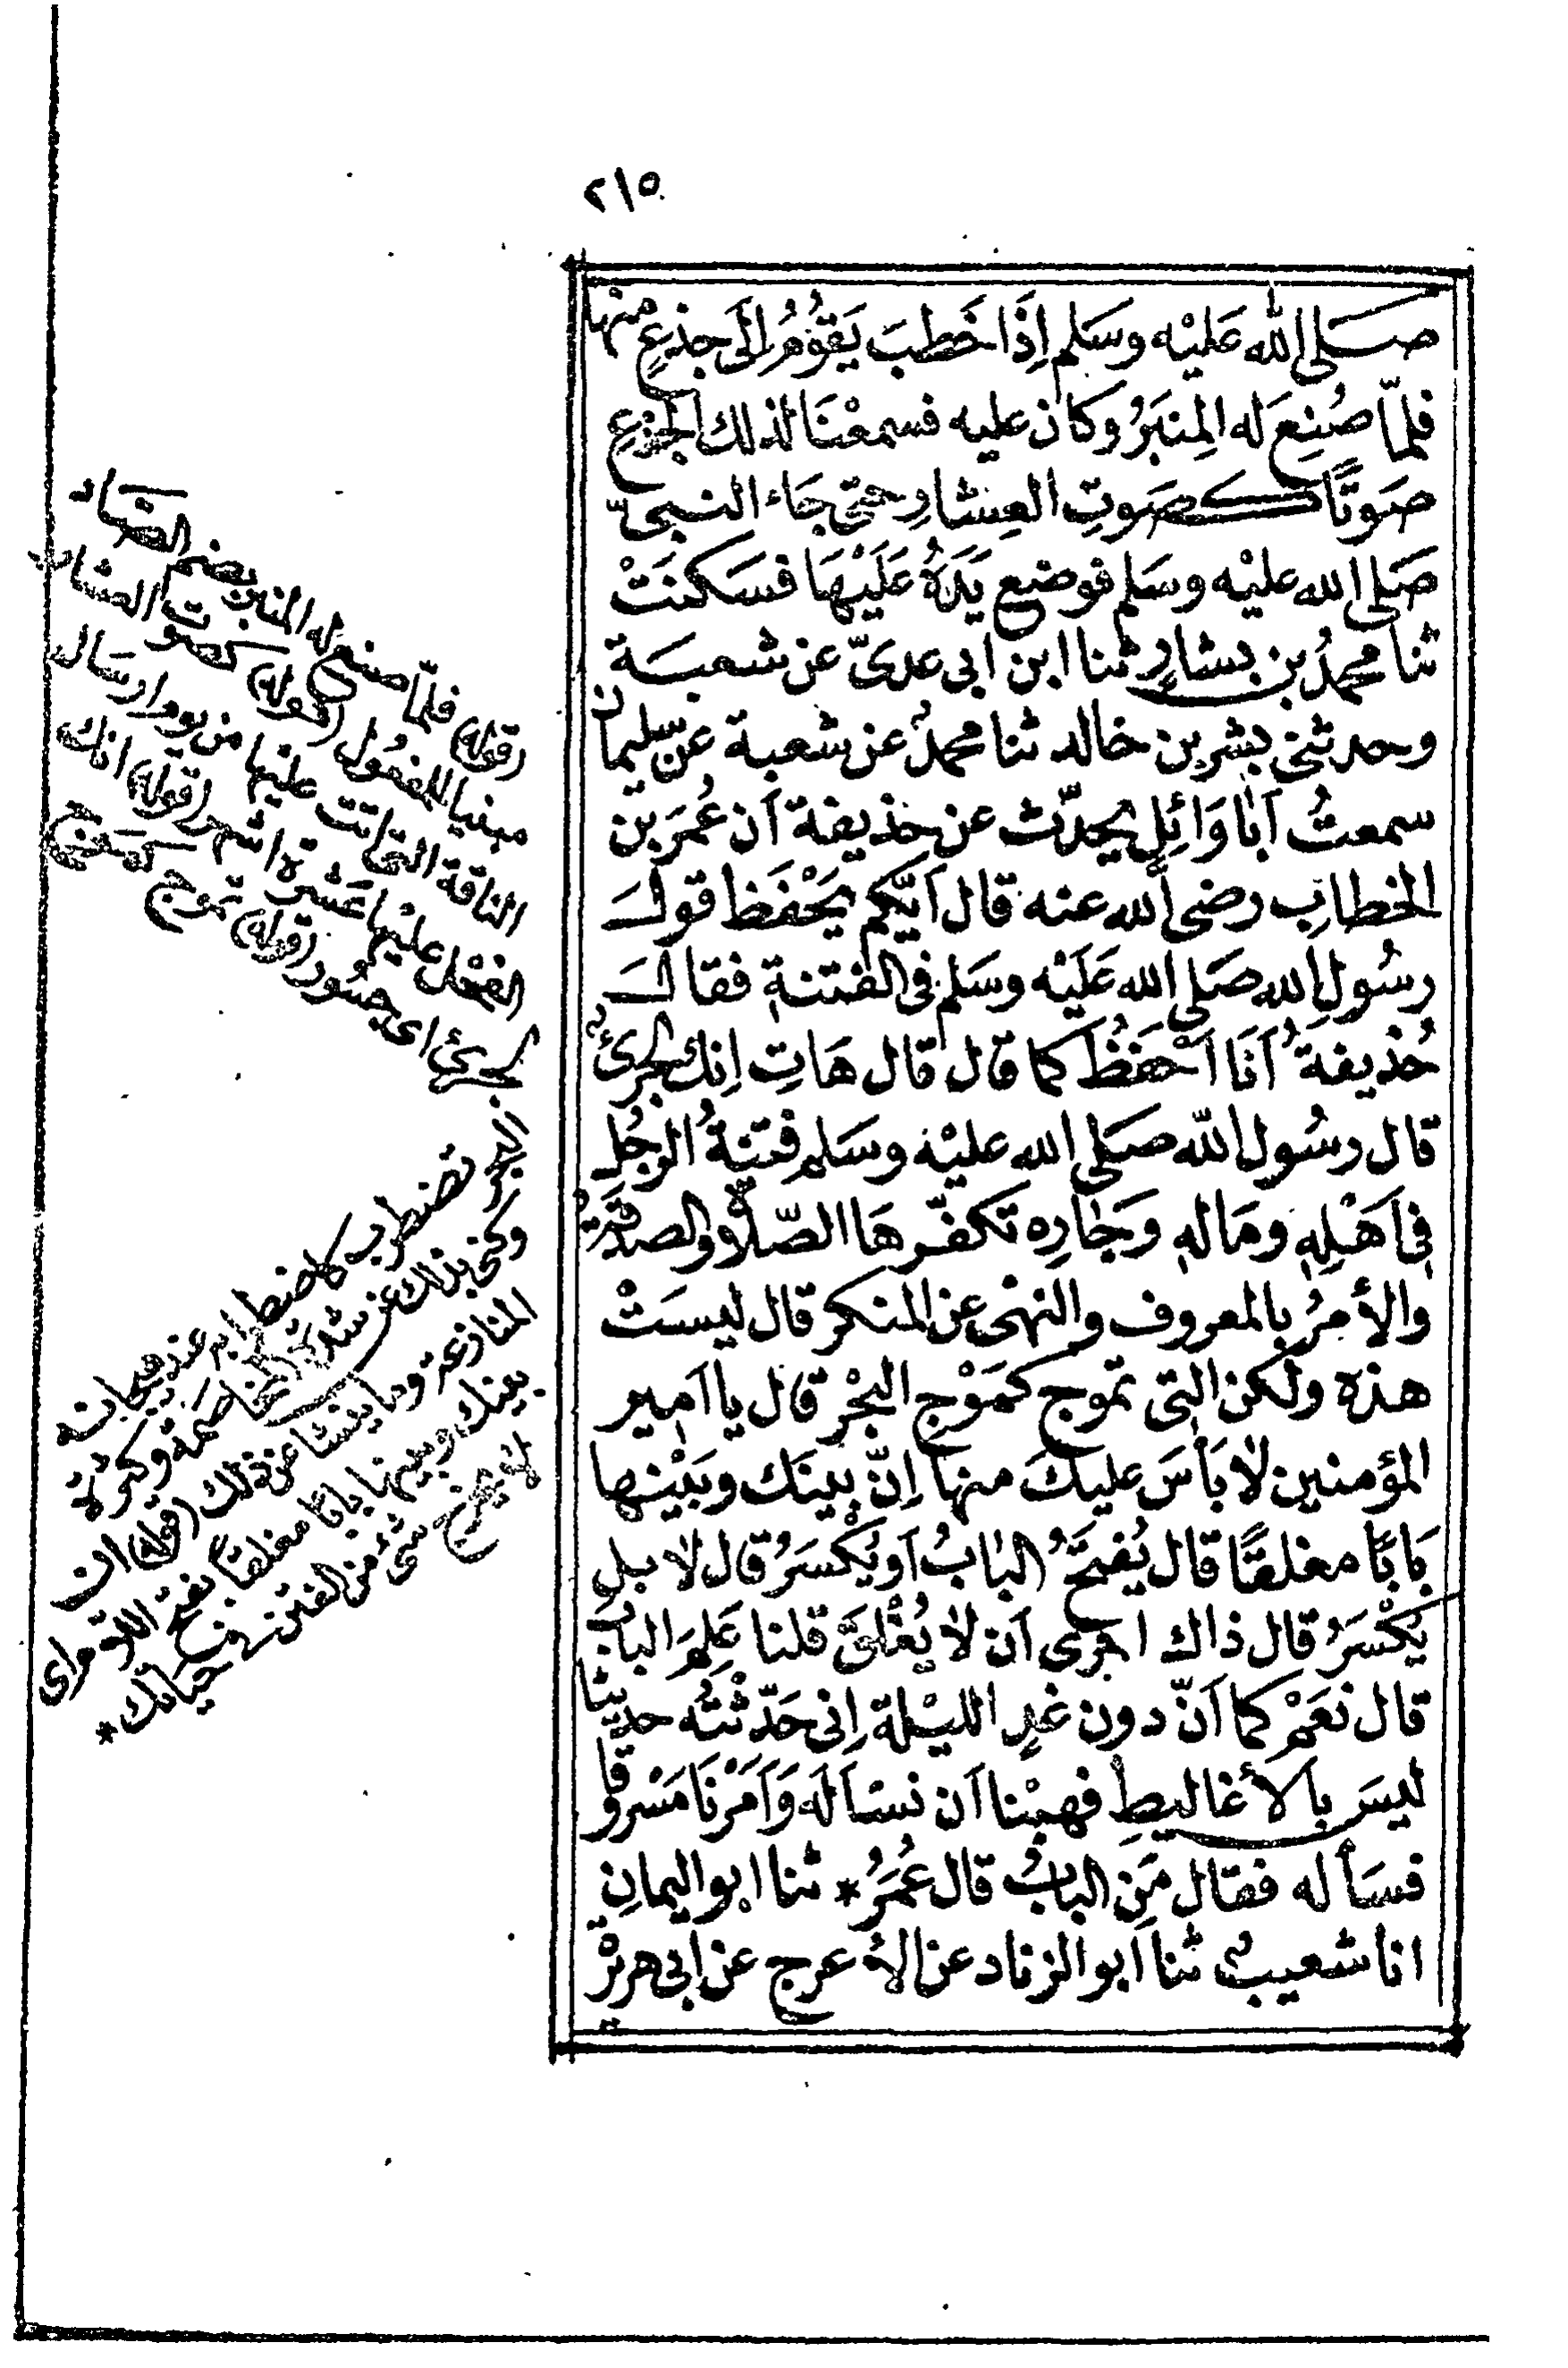 ٢١٥
صَلى الله عَليْه وسَلم اِذَا خَطبَ يَقُومُ اِلَى جذعٍ منْها
فلمّا صُنِعَ له المِنبَرُ وكان عليه فسمعْنَا لذلك الجذعِ
صَوتًا كصَوتِ العِشارِ حتى جَاء النبىّ
صَلى الله عليْه وسَلم فوضع يَدَهُ عَلَيْهَا فسَكنَتْ
ثنا محمدُ بن بشارٍ ثنا ابن ابى عدىّ عن شعبَة
وحدثنى بشر بن خالد ثنا محمدٌ عن شعبة عن سليمان
سمعتُ اَبا وَائِلٍ يحدّث عن حذيفة اَن عُمَرَ بن
الخطابِ رضى الله عنه قال اَيّكم يَحْفَظ قولَ
رسُول الله صَلى الله عَلَيْه وسَلم فى الفتنةِ فقالَ
حُذيفةُ اَنَا اَحفظُ كما قال قال هَاتِ اِنك لجرئٌ
قال رسُول الله صَلى الله عليْه وسَلم فتنةُ الرجُلِ
فى اَهْلِهِ ومَالهِ وَجَارِه تكفّرهَا الصّلاة والصدقةُ
والأمرُ بالمعروف والنهْى عن المنكر قال ليسَتْ
هذه ولكن التى تموج كمَوْج البحْر قال يا اَمير
المؤمنين لا بَأسَ عليكَ منها اِنّ بينَك وبَيْنها
بَابًا مغلقًا قال يُفتَحُ البابُ اَو يُكْسَرُ قال لا بل
يُكْسَرُ قال ذاك احرى اَن لا يُغْلقَ قلنا عَلِمَ البابَ
قال نعَمْ كما اَنّ دون غدٍ الليْلة اِنى حَدّثتُه حديثا
ليسَ بالأغاليطِ فهبْنا اَن نسْاَ لَه وَاَمَرْنَا مَسْروقا
فسَأله فقال مَن البابُ قال عُمَرُ * ثنا ابو اليمانِ
انا شعيبٌ ثنا اَبو الزناد عن الأعرج عن ابى هريرْة
(قوله) فلمّا صنع له المنبر بضم الصَاد
مبنيا للمفعُول (قوله) كصَوت العشار
الناقة التى اتت عليْها من يوم ارسَال
الفحْل عليْها عشرة اشهر (قوله) انك
لجرئ اى جسُور (قوله) تموج كموْج
البحر تضطرب كاضطرابه عند هيجانه
وكنى بذلك عن شدة المخاصَمة وكثرة
المنازعة وما ينشا عن ذلك (قوله) ان
بينك وبينها بابًا مغلقاً بفتح اللام اى
لا يخرج شئ من الفتن فى حياتك *